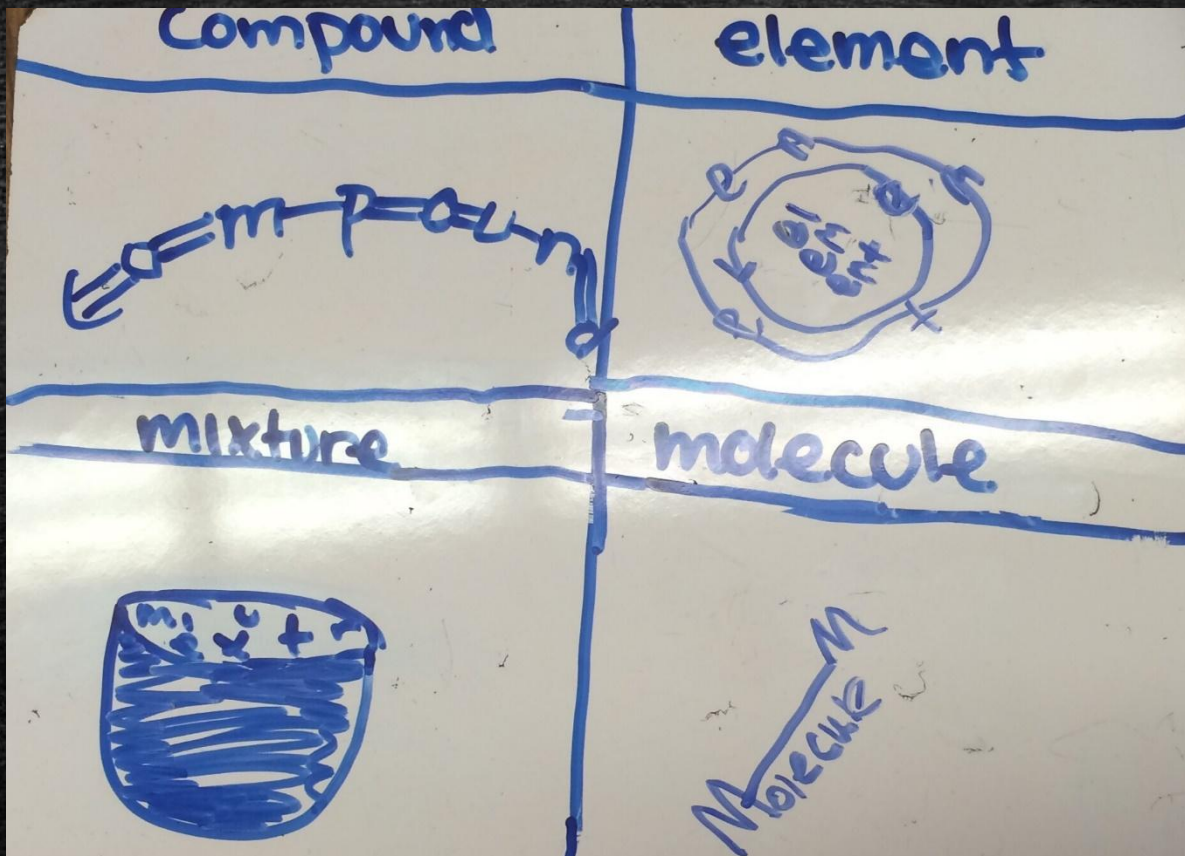 Compound
element
C=O=m-P=O=U-n=d
el
em
ent
mixture
molecule
Molecule
M